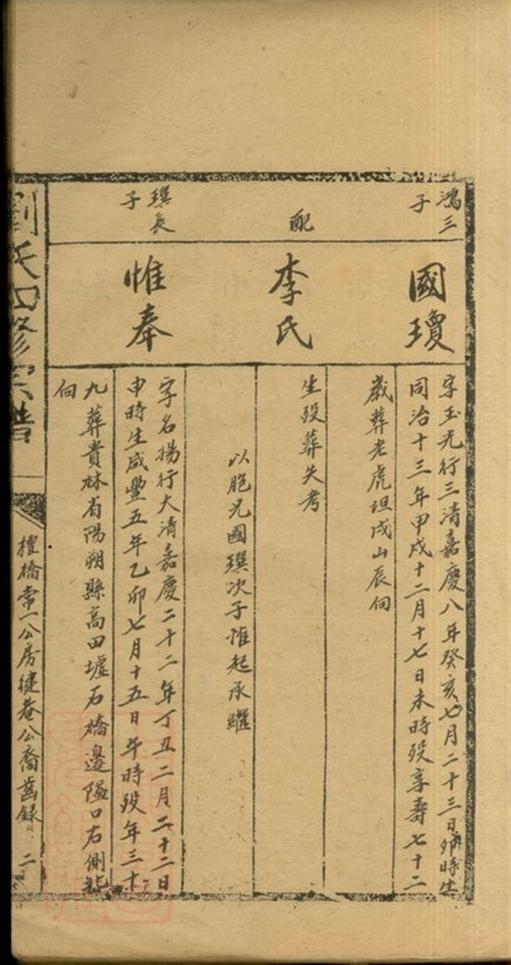 鴻三子
國瓊
字玉光行三清嘉慶八年癸亥七月二十三日卯時生
同治十三年甲戌十二月十七日未時歿享壽七十二
歲葬老虎坦戌山辰向
配
李氏
生歿葬失考
以胞兄國璵次子惟起承繼
璵長子
惟奉
字名揚行大清嘉慶二十二年丁丑二月二十二日
申時生咸豐五年乙卯七月十五日午時歿年三十
九葬貴林省陽朔縣高田墟石橋邊隘口右側北
向
劉氏四修宗譜
檀橋常一公房健菴公裔齒錄 二